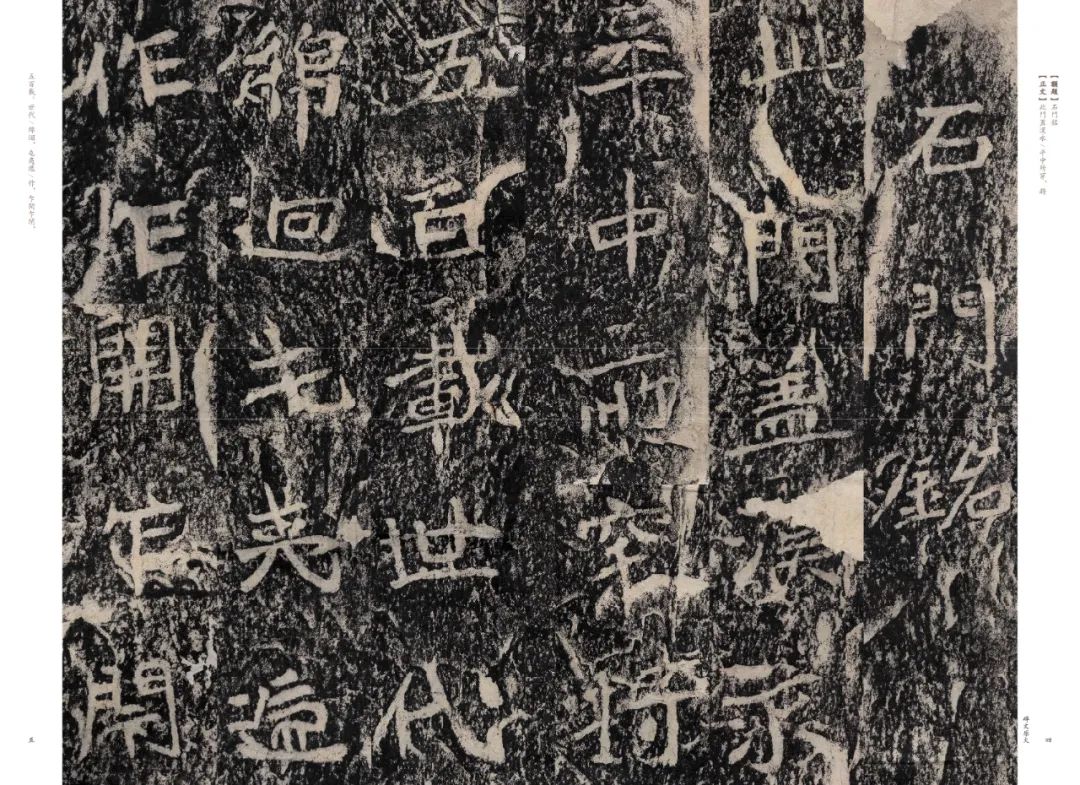 【額題】石門銘
【正文】此門蓋漢永\平中所穿，將
石門銘
此門盖漢永
平中所穿將
五百載世代
綿迴屯夷遞
作乍開乍閇
五百載，世代\綿迴，屯夷遞\作，乍開乍閉。
碑文放大
四
五